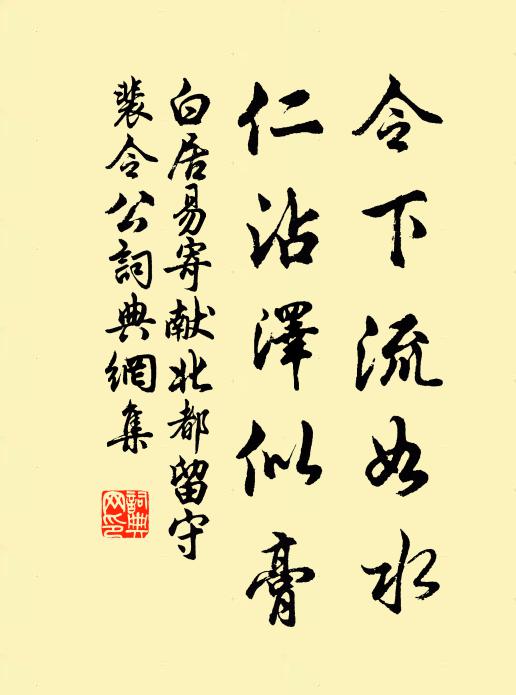 令下流如水
仁沾澤似膏
白居易寄献北都留守
裴令公詞典網集
詞典
网印